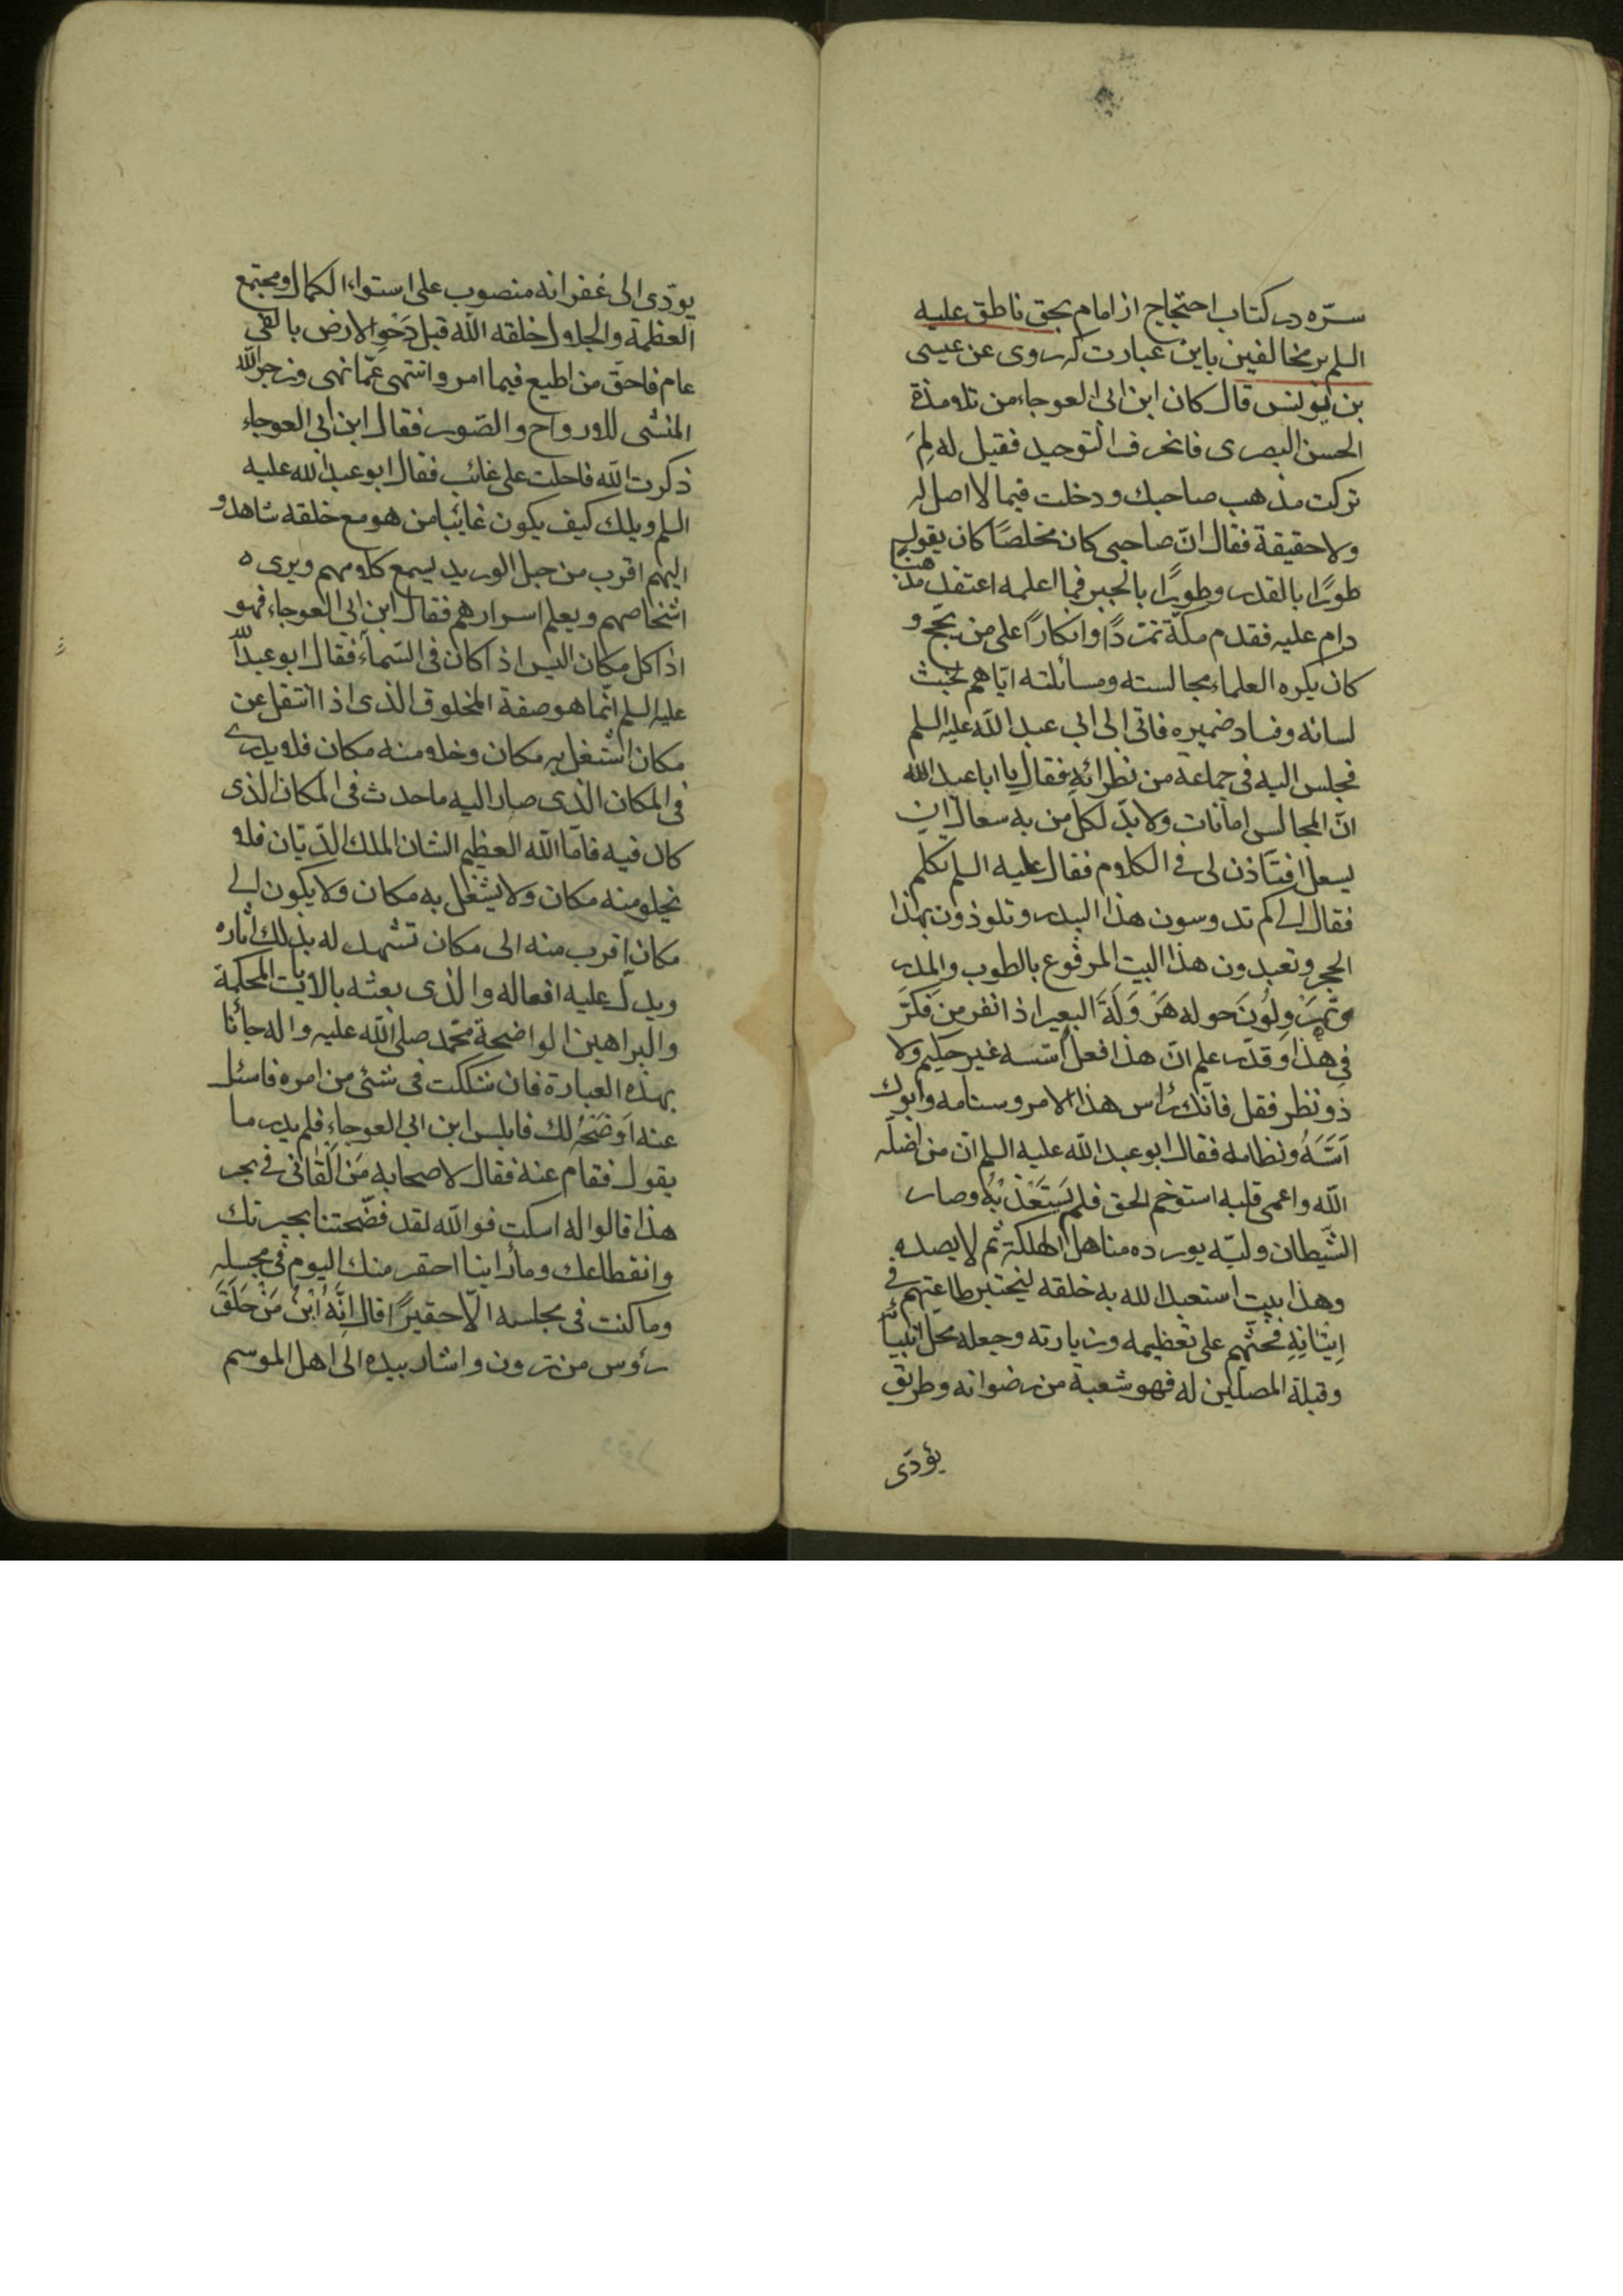 سرّه در كتاب احتجاج از امام بحق ناطق عليه
السلم بر مخالفين باين عبارت كه روى عن عيسى
بن يونس قال كان ابن ابى العوجاء من تلامذة
الحسن البصرى فانحرف التوحيد فقيل له لِمَ
تركت مذهب صاحبك و دخلت فيما لا اصل له
ولا حقيقة فقال انّ صاحبى كان مخلصًا كان يقول
طورًا بالقدر وطورًا بالجبر فما اعلمه اعتقد مذهبا
دام عليه فقدم مكّة تمرّدًا وانكارًا على من يحج و
كان يكره العلماء مجالسته ومسائلته ايّاهم لخبث
لسانه وفساد ضميره فاتى الى ابى عبد الله عليه السلم
فجلس اليه فى جماعة من نظرائه فقال يا ابا عبد الله
انّ المجالس امانات ولا بدّ لكل من به سعال ان
يسعل افتأذن لى فى الكلام فقال عليه السلم تكلم
فقال الى كم تدوسون هذا البيدر وتلوذون بهذا
الحجر وتعبدون هذا البيت المرفوع بالطوب والمدر
وتهَرْوِلُونَ حوله هَرْوَلَةَ البعير اذا نفر من فكّر
فى هذا وقدّر علم انّ هذا فعل اسّسه غير حكيم ولا
ذو نظر فقل فانك رأس هذا الامر وسنامه وابوك
اُسُّهُ ونظامه فقال ابو عبد الله عليه السلم انّ من اضلّه
الله واعمى قلبه استوخم الحق فلم يَستَعْذِبْهُ وصار
الشّيطان وليّه يورده مناهل الهلكة ثم لا يصدره
وهذا بيت استعبد الله به خلقه ليختبر طاعتهم فى
اِتْيَانِهِ فحثّهم على تعظيمه وزيارته وجعله محل انبيائه
وقبلة المصلين له فهو شعبة من رضوانه وطريق
يؤدّى
يودّى الى غفرانه منصوب على استواء الكمال ومجتمع
العظمة والجلال خلقه الله قبل دَحْوِ الارض بالفى
عام فاحق من اطيع فيما امر وانتهى عمّا نهى وزجر الله
المنشى للارواح والصّور فقال ابن ابى العوجاء
ذكرت الله فاحلت على غائب فقال ابو عبد الله عليه
السلم ويلك كيف يكون غائبا من هو مع خلقه شاهد و
اليهم اقرب من حبل الوريد يسمع كلامهم ويرى
اشخاصهم ويعلم اسرارهم فقال ابن ابى العوجاء فهو
اذا كل مكان اليس اذا كان فى السّماء فقال ابو عبد الله
عليه السلم انّما هو صفة المخلوق الذى اذا انتقل عن
مكان اشتغل به مكان وخلا منه مكان فلا يدرى
فى المكان الذى صار اليه ما حدث فى المكان الذى
كان فيه فامّا الله العظيم الشان الملك الدّيّان فلا
يخلو منه مكان ولا يشغل به مكان ولا يكون الى
مكان اقرب منه الى مكان تشهد له بذلك آثاره
ويدلّ عليه افعاله والذى بعثه بالايات المحكمة
والبراهين الواضحة محمّد صلى الله عليه واله جائنا
بهذه العبارة فان شككت فى شئ من امره فاسئل
عنه اَوضَحْهُ لك فابلس ابن ابى العوجاء فلم يدر ما
يقول فقام عنه فقال لاصحابه مَن اَلْقانى فى بحر
هذا قالوا له اسكت فوالله لقد فضّحتنا بحيرتك
وانقطاعك وما راينا احقر منك اليوم فى مجلسه
وما كنت فى مجلسه الّا حقيرًا قال اِنَّهُ ابْنُ مَنْ حَلَقَ
رؤس من ترون واشار بيده الى اهل الموسم